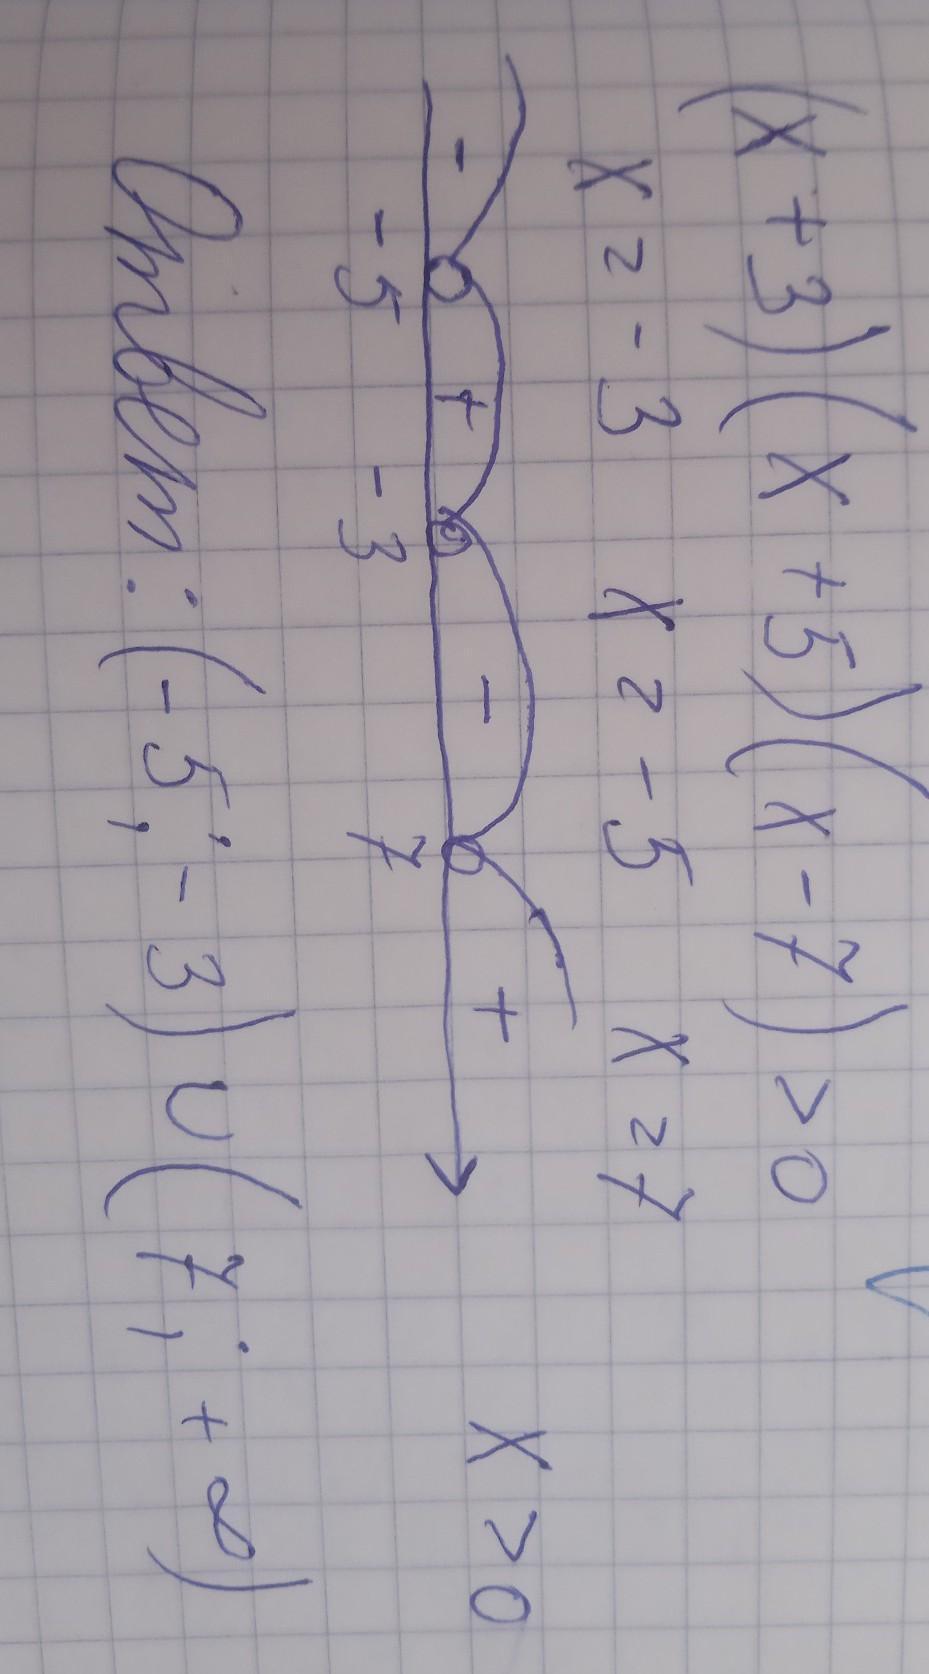 (x + 3)(x + 5)(x - 7) > 0
x = -3 x = -5 x = 7
- + - + x > 0
-5 -3 7
Ответ: (-5; -3) ∪ (7; +∞)